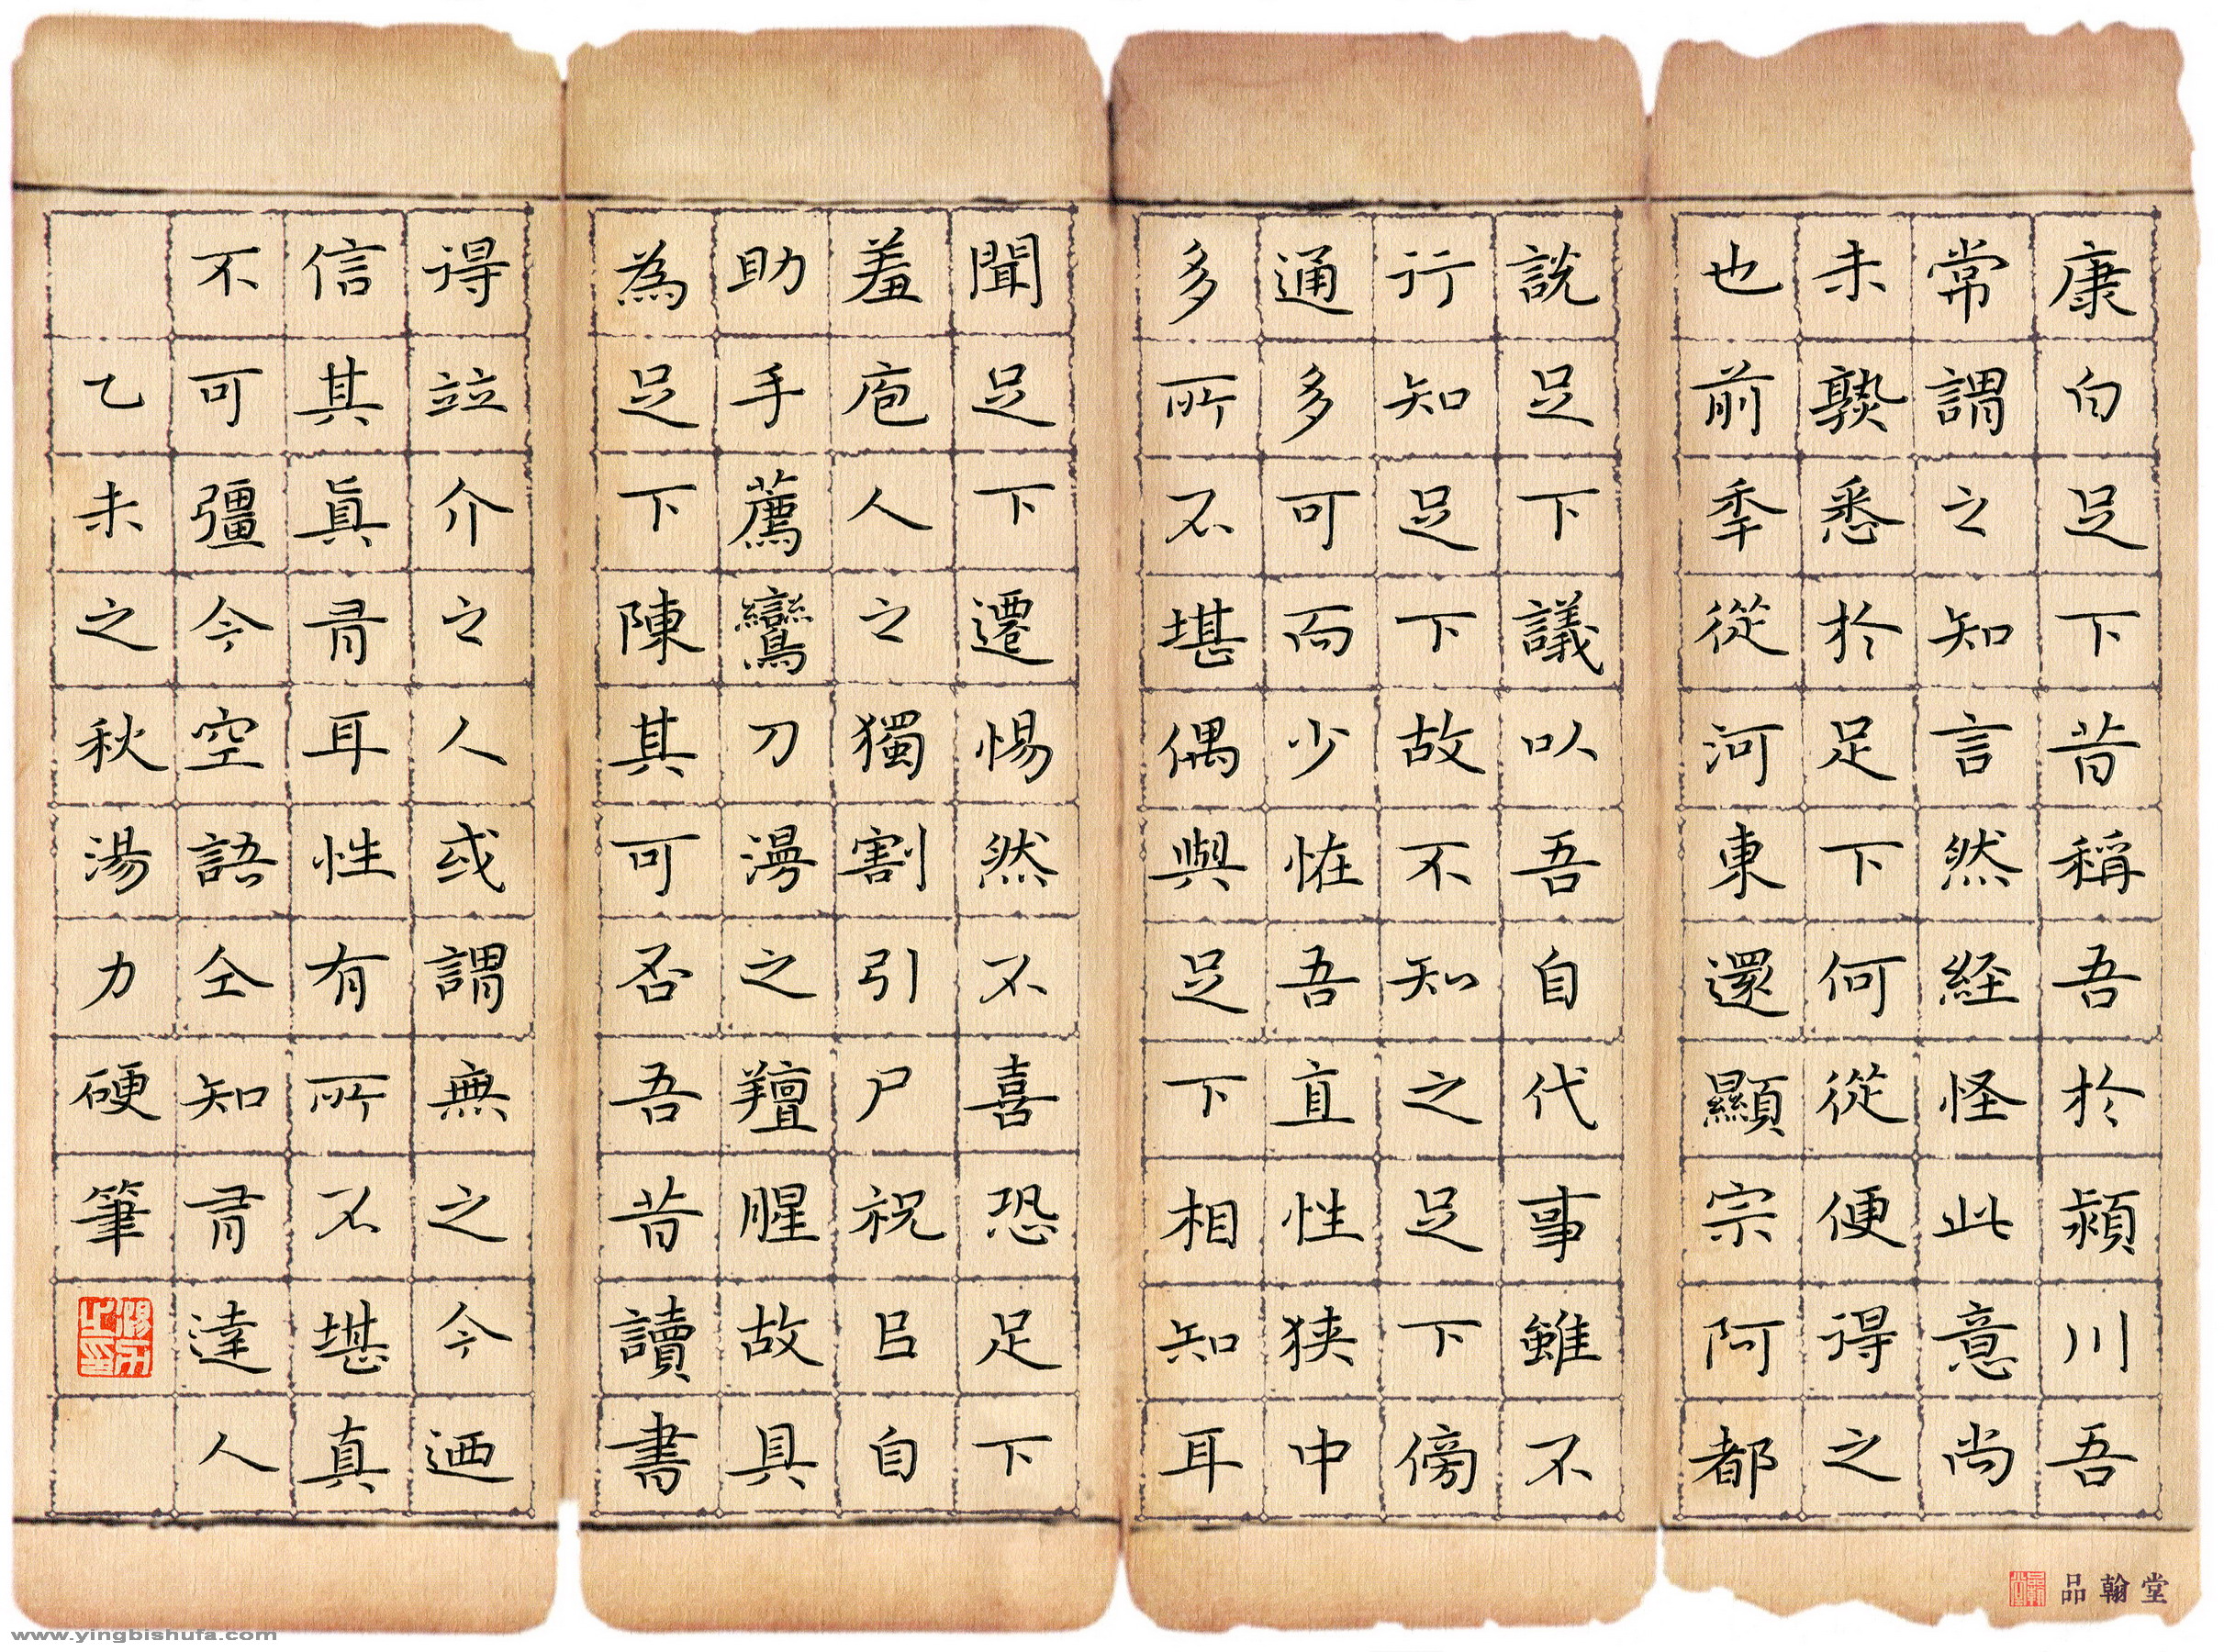 康白足下昔稱吾於潁川吾
常謂之知言然経怪此意尚
未熟悉於足下何從便得之
也前秊從河東還顯宗阿都
說足下議以吾自代事雖不
行知足下故不知之足下傍
通多可而少恠吾直性狭中
多所不堪偶與足下相知耳
聞足下遷惕然不喜恐足下
羞庖人之獨割引尸祝㠯自
助手薦鸞刀漫之羶腥故具
為足下陳其可否吾昔讀書
得竝介之人或謂無之今迺
信其眞有耳性有所不堪真
不可彊今空語仝知有達人
乙未之秋湯力硬筆
品翰堂
www.yingbishufa.com